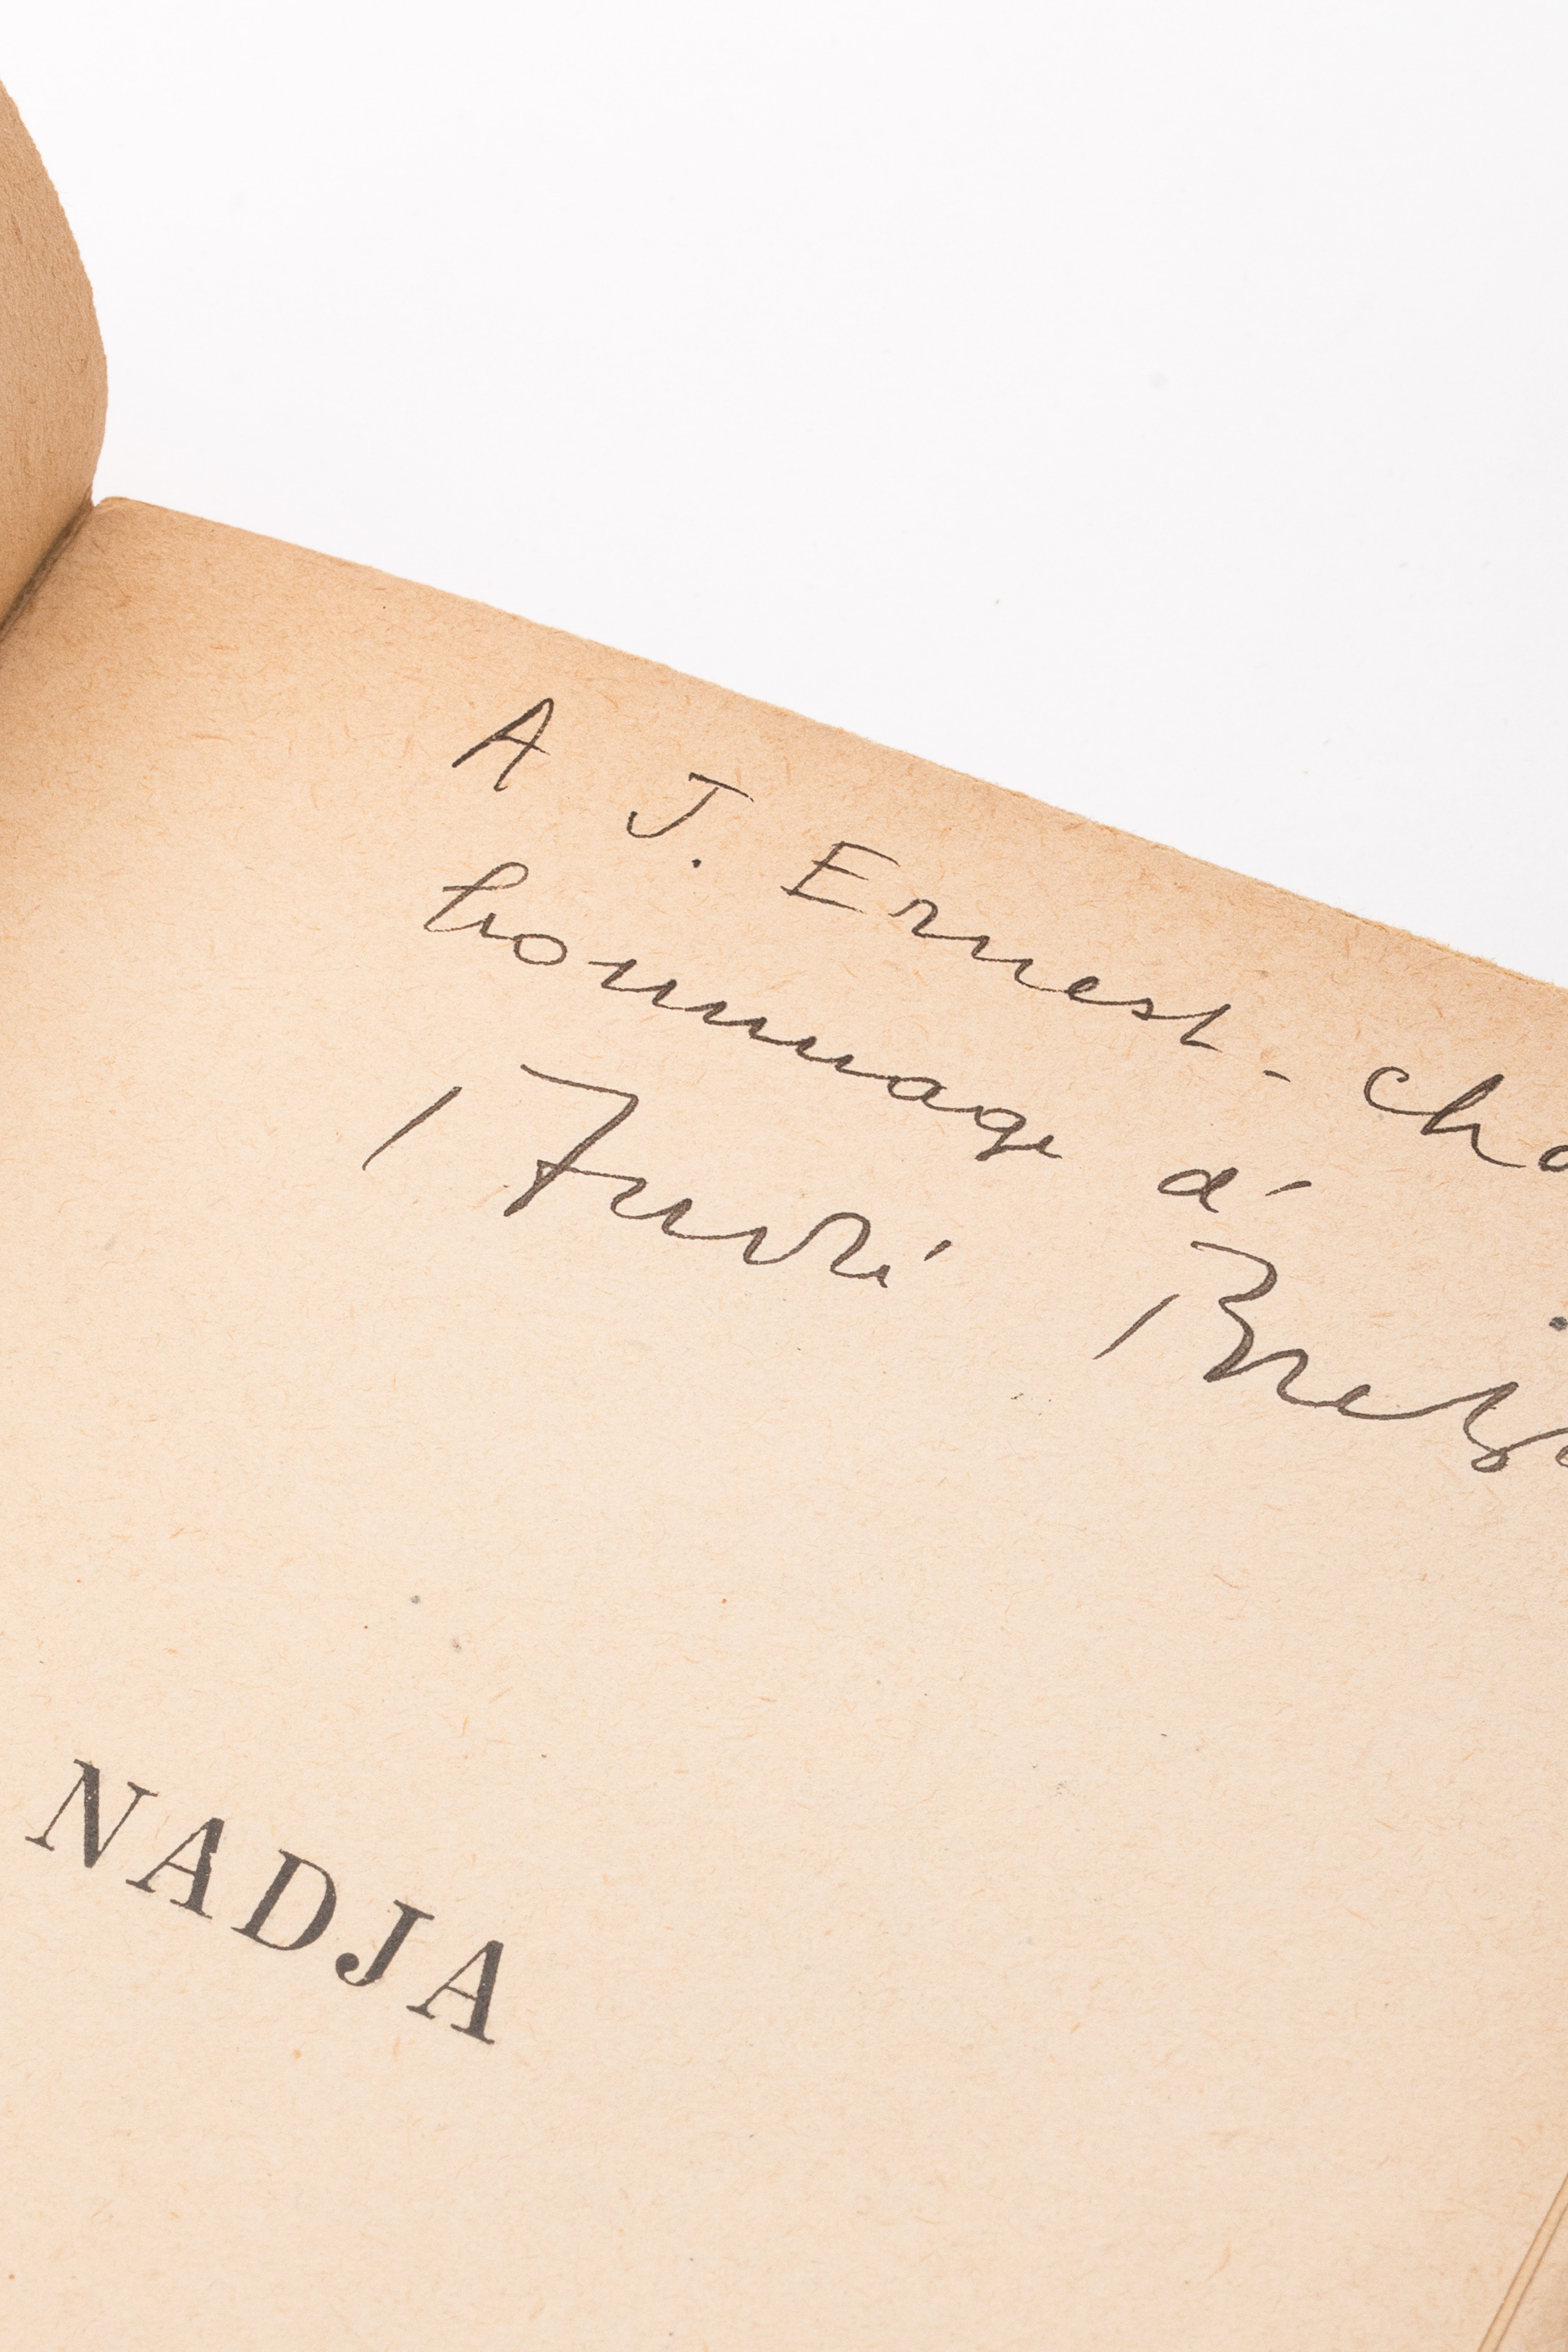 A J. Ernest-Cha
hommage d'
André Breto
NADJA